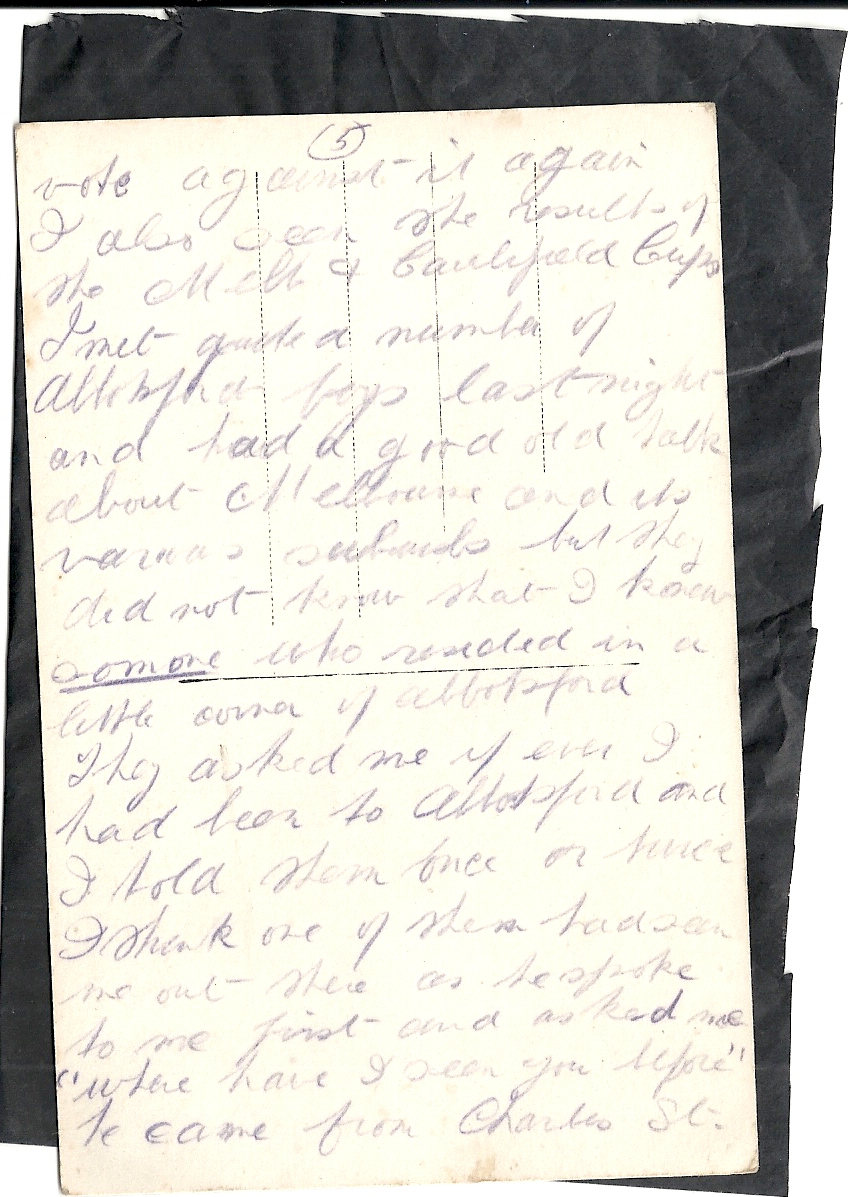 (5)
vote against it again
I also seen the results of
the Melb & Caulifield Cups
I met quite a number of
Abbotsford boys last night
and had a good old talk
about Melbourne and its
various suburbs but they
did not know that I knew
somone who resided in a
little corner of Abbotsford
They asked me if ever I
had been to Abbotsford and
I told them once or twice
I think one of them had seen
me out there as he spoke
to me first and asked me
"where have I seen you before"
he came from Charles St.